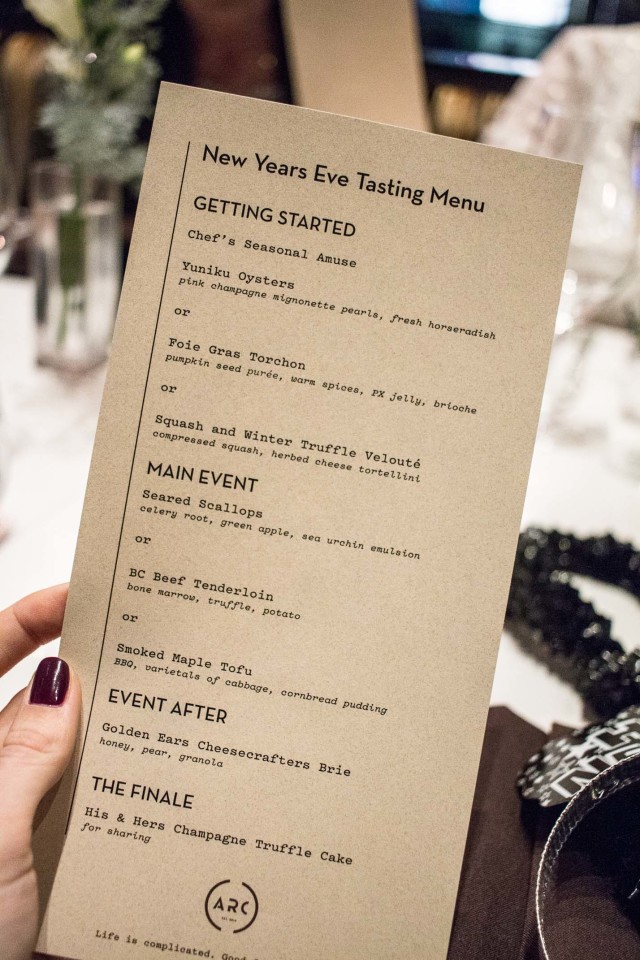 New Years Eve Tasting Menu
GETTING STARTED
Chef's Seasonal Amuse
Yuniku Oysters
pink champagne mignonette pearls, fresh horseradish
or
Foie Gras Torchon
pumpkin seed purée, warm spices, PX jelly, brioche
or
Squash and Winter Truffle Velouté
compressed squash, herbed cheese tortellini
MAIN EVENT
Seared Scallops
celery root, green apple, sea urchin emulsion
or
BC Beef Tenderloin
bone marrow, truffle, potato
or
Smoked Maple Tofu
BBQ, varietals of cabbage, cornbread pudding
EVENT AFTER
Golden Ears Cheesecrafters Brie
honey, pear, granola
THE FINALE
His & Hers Champagne Truffle Cake
for sharing
ARC
Life is complicated. Good